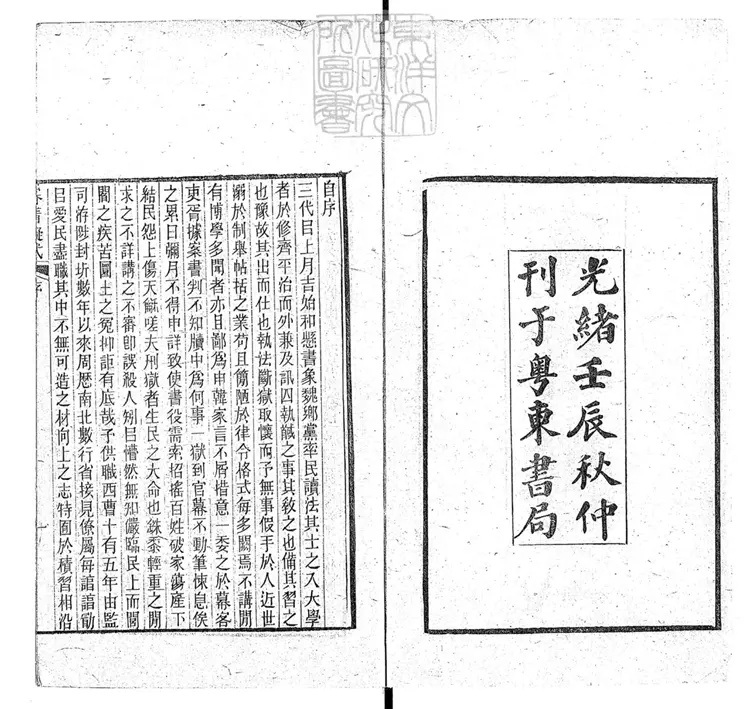 東洋文
化研究
所圖書
光緒壬辰秋仲
刊于粵東書局
自序
三代㠯上月吉始和懸書象魏鄉黨率民讀法其士之入大學
者於修齊平治而外兼及訊囚執馘之事其敎之也備其習之
也豫故其出而仕也執法斷獄取懷而予無事假手於人近世
溺於制舉帖括之業苟且簡陋於律令格式每多闕焉不講閒
有博學多聞者亦且鄙爲申韓家言不屑措意一委之於幕客
吏胥據案書判不知牘中爲何事一獄到官幕不動筆悚息俟
之累日彌月不得申詳致使書役需索招搖百姓破家蕩產下
結民怨上傷天龢嗟夫刑獄者生民之大命也銖黍輕重之閒
求之不詳講之不審卽誤殺人矧㠯懵然無知儼臨民上而閭
閻之疾苦圜土之冤抑詎有底哉予供職西曹十有五年由監
司洊陟封圻數年以來周歷南北數行省接見僚屬每諄諄勖
㠯愛民盡職其中不無可造之材向上之志特囿於積習相沿
序